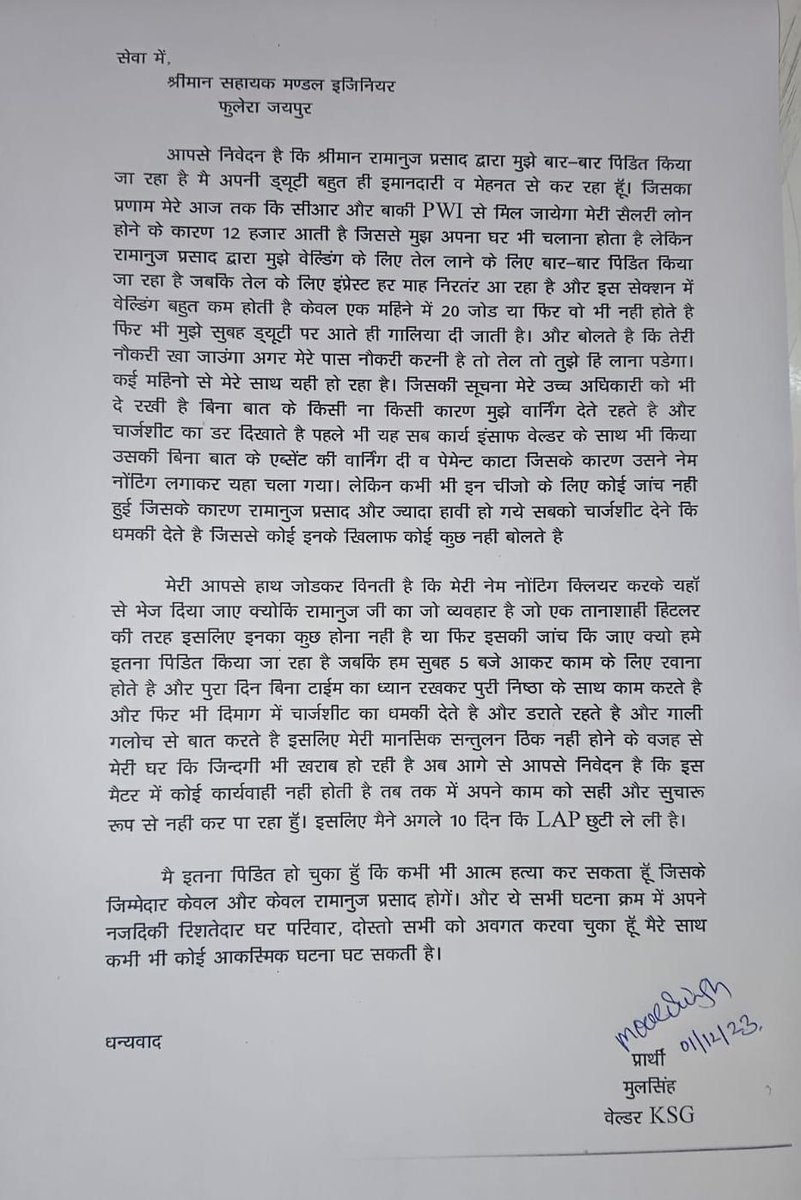 सेवा में,
श्रीमान सहायक मण्डल इजिनियर
फुलेरा जयपुर
आपसे निवेदन है कि श्रीमान रामानुज प्रसाद द्वारा मुझे बार–बार पिडित किया
जा रहा है मै अपनी ड्यूटी बहुत ही इमानदारी व मेहनत से कर रहा हूॅ। जिसका
प्रणाम मेरे आज तक कि सीआर और बाकी PWI से मिल जायेगा मेरी सैलरी लोन
होने के कारण 12 हजार आती है जिससे मुझ अपना घर भी चलाना होता है लेकिन
रामानुज प्रसाद द्वारा मुझे वेल्डिंग के लिए तेल लाने के लिए बार–बार पिडित किया
जा रहा है जबकि तेल के लिए इंप्रेस्ट हर माह निरतंर आ रहा है और इस सेक्शन में
वेल्डिंग बहुत कम होती है केवल एक महिने में 20 जोड या फिर वो भी नही होते है
फिर भी मुझे सुबह ड्यूटी पर आते ही गालिया दी जाती है। और बोलते है कि तेरी
नौकरी खा जाउंगा अगर मेरे पास नौकरी करनी है तो तेल तो तुझे हि लाना पडेगा।
कई महिनो से मेरे साथ यही हो रहा है। जिसकी सूचना मेरे उच्च अधिकारी को भी
दे रखी है बिना बात के किसी ना किसी कारण मुझे वार्निंग देते रहते है और
चार्जशीट का डर दिखाते है पहले भी यह सब कार्य इंसाफ वेल्डर के साथ भी किया
उसकी बिना बात के एब्सेंट की वार्निंग दी व पेमेन्ट काटा जिसके कारण उसने नेम
नोंटिग लगाकर यहा चला गया। लेकिन कभी भी इन चीजो के लिए कोई जांच नही
हुई जिसके कारण रामानुज प्रसाद और ज्यादा हावी हो गये सबको चार्जशीट देने कि
धमकी देते है जिससे कोई इनके खिलाफ कोई कुछ नही बोलते है
मेरी आपसे हाथ जोडकर विनती है कि मेरी नेम नोंटिग क्लियर करके यहॉ
से भेज दिया जाए क्योकि रामानुज जी का जो व्यवहार है जो एक तानाशाही हिटलर
की तरह इसलिए इनका कुछ होना नही है या फिर इसकी जांच कि जाए क्यो हमे
इतना पिडित किया जा रहा है जबकि हम सुबह 5 बजे आकर काम के लिए रवाना
होते है और पुरा दिन बिना टाईम का ध्यान रखकर पुरी निष्ठा के साथ काम करते है
और फिर भी दिमाग में चार्जशीट का धमकी देते है और डराते रहते है और गाली
गलोच से बात करते है इसलिए मेरी मानसिक सन्तुलन ठिक नही होने के वजह से
मेरी घर कि जिन्दगी भी खराब हो रही है अब आगे से आपसे निवेदन है कि इस
मैटर में कोई कार्यवाही नही होती है तब तक में अपने काम को सही और सुचारू
रूप से नही कर पा रहा हूॅ। इसलिए मैने अगले 10 दिन कि LAP छुटी ले ली है।
मै इतना पिडित हो चुका हुॅ कि कभी भी आत्म हत्या कर सकता हूॅ जिसके
जिम्मेदार केवल और केवल रामानुज प्रसाद होगें। और ये सभी घटना क्रम में अपने
नजदिकी रिशतेदार घर परिवार, दोस्तो सभी को अवगत करवा चुका हूॅ मैरे साथ
कभी भी कोई आकस्मिक घटना घट सकती है।
धन्यवाद
moolsingh
01/12/23.
प्रार्थी
मुलसिंह
वेल्डर KSG